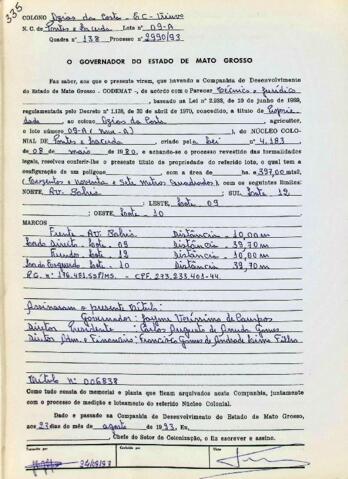 335
COLONO Ozias da Costa - EC - Viúvo
N. C. de Pontes e Lacerda Lote nº 09-A
Quadra nº 138 Processo nº 2990/93
O GOVERNADOR DO ESTADO DE MATO GROSSO
Faz saber, aos que o presente virem, que havendo a Companhia de Desenvolvimento
do Estado de Mato Grosso - CODEMAT -, de acôrdo com o Parecer Técnico e Jurídico
, baseado na Lei nº 2.938, de 19 de junho de 1969,
regulamentada pelo Decreto nº 1.138, de 20 de abril de 1970, concedido, a título de Proprie
dade ao colono Ozias da Costa, agricultor,
o lote número 09-A (Nove-A) do NÚCLEO COLO-
NIAL DE Pontes e Lacerda criado pela Lei nº 4.183
de 08 de maio de 1980 e achando-se o processo revestido das formalidades
legais, resolveu conferir-lhe o presente título de propriedade do referido lote, o qual tem a
configuração de um polígono com a área de ha 397,00 mts²
(Trezentos e Noventa e Sete Metros Quadrados) com os seguintes limites:
NORTE, Av. Bahia; SUL, Lote 12
; LESTE, Lote 09
; OESTE, Lote 10
MARCOS
Frente - Av. Bahia Distância - 10,00 m
Lado Direito - Lote - 09 Distância - 39,70 m
Fundo - Lote - 12 Distância - 10,00 m
Lado Esquerdo - Lote - 10 Distância - 39,70 m
CPF. 273.233.401-44
Assinaram o presente título:
Governador: Jayme Veríssimo de Campos
Diretor Presidente: Carlos Augusto de Arruda Gomes
Diretor Adm. e Financeiro: Francisco Gomes de Andrade Lima Filho
Título nº 006838
Como tudo consta do memorial e planta que ficam arquivados nesta Companhia, juntamente
com o processo de medição e loteamento do referido Núcleo Colonial.
Dado e passado na Companhia de Desenvolvimento do Estado de Mato Grosso,
aos 23 dias do mês agosto de 1993. Eu,
Chefe do Setor de Colonização, o fiz escrever e assino.
Transcrito por Conferido por Visto
24/08/93